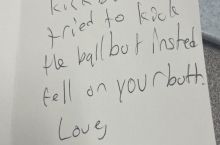 tried to kick
the ball but insted
fell on your butt.
Love,